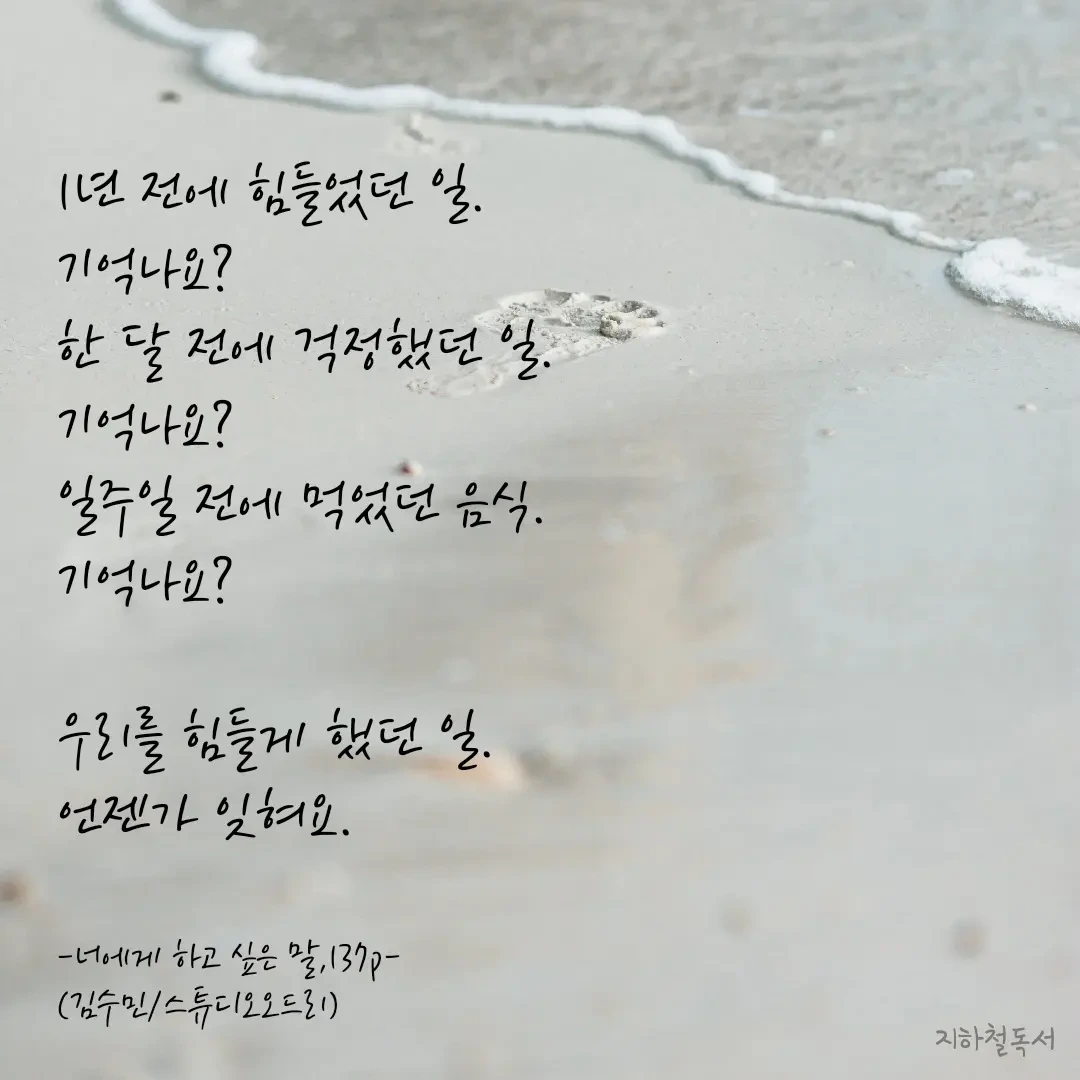 1년 전에 힘들었던 일.
기억나요?
한 달 전에 걱정했던 일.
기억나요?
일주일 전에 먹었던 음식.
기억나요?
우리를 힘들게 했던 일.
언젠가 잊혀요.
-너에게 하고 싶은 말,137p-
(김수민/스튜디오오드리)
지하철독서